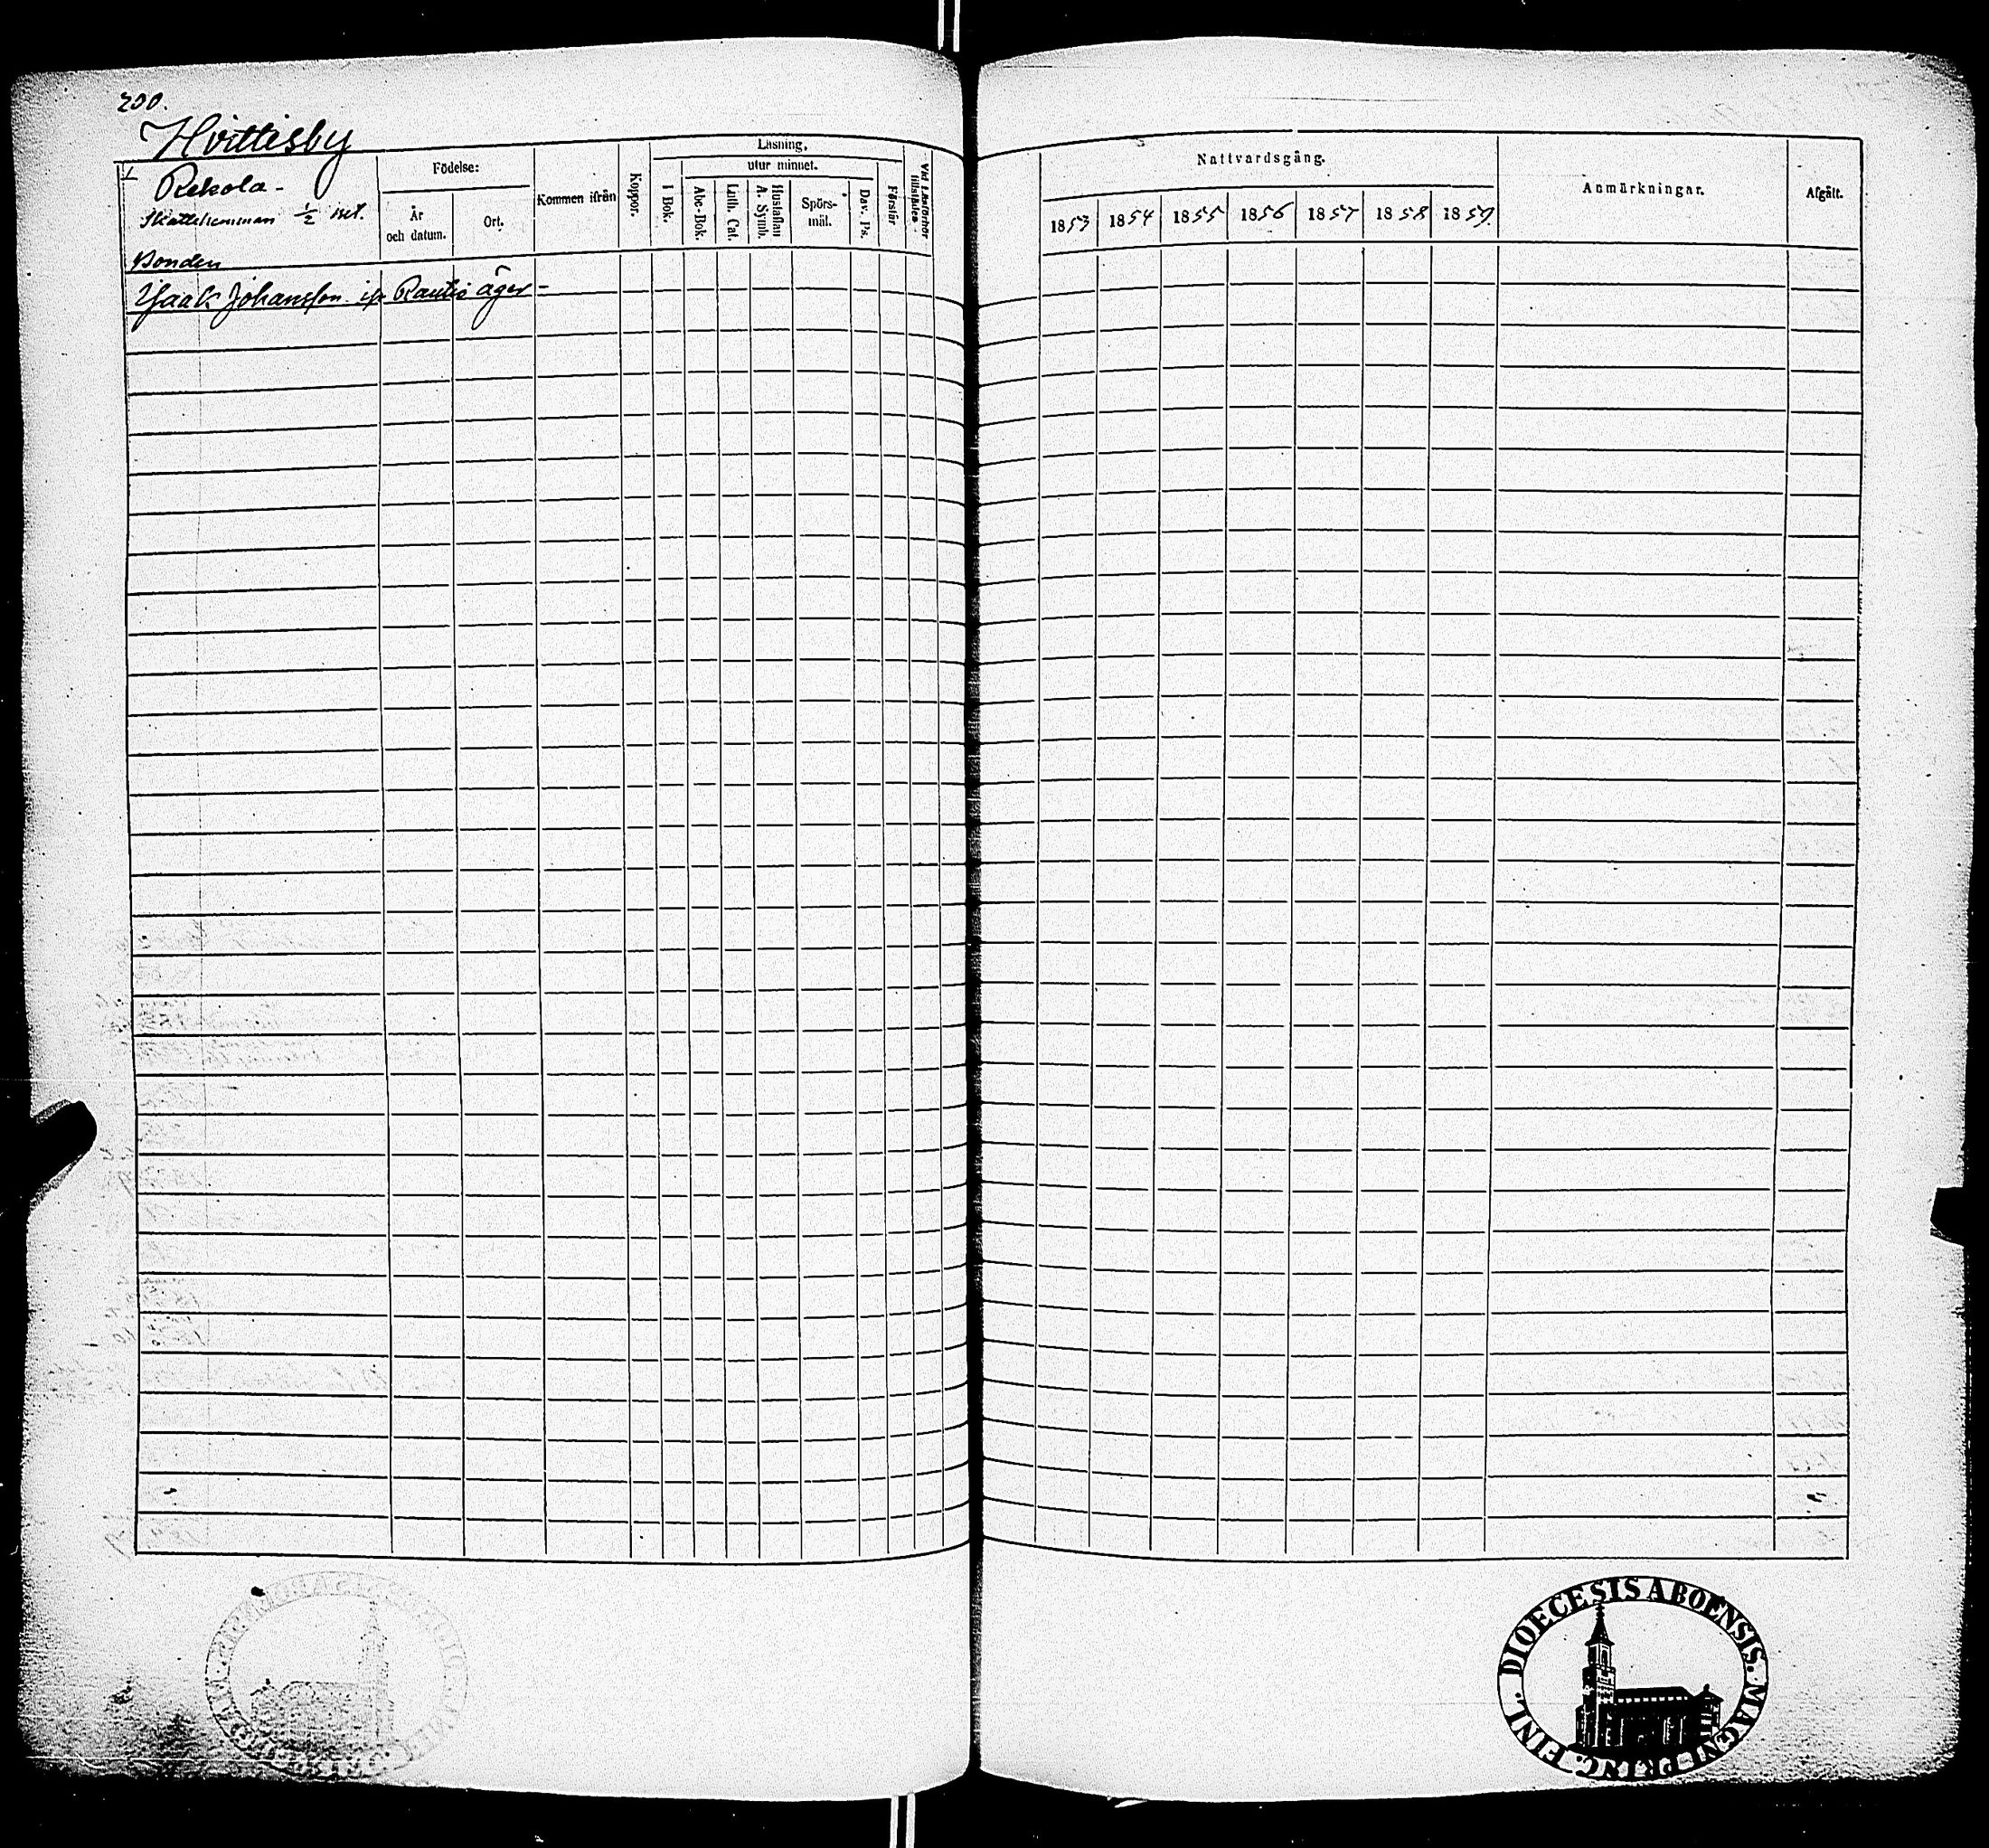 200.
Hvittisby
1 Rekola -
Skattehemman 1/2 mt.
Bonden
Isaak Johansson ifr Rautio äger -
Födelse:
År och datum.
Ort.
Kommen ifrån
Koppor.
Läsning,
utur minnet.
I Bok.
Abc-Bok.
Luth. Cat.
Hustaflan A. Symb.
Spörs-mål.
Dav. Ps.
Förstår
Vid Läsförhör tillstädes
Nattvardsgång.
1853 1854 1855 1856 1857 1858 1859.
Anmärkningar.
Afgått.
DIOECESIS ABOENSIS. MAGNI PRINC. FINL.